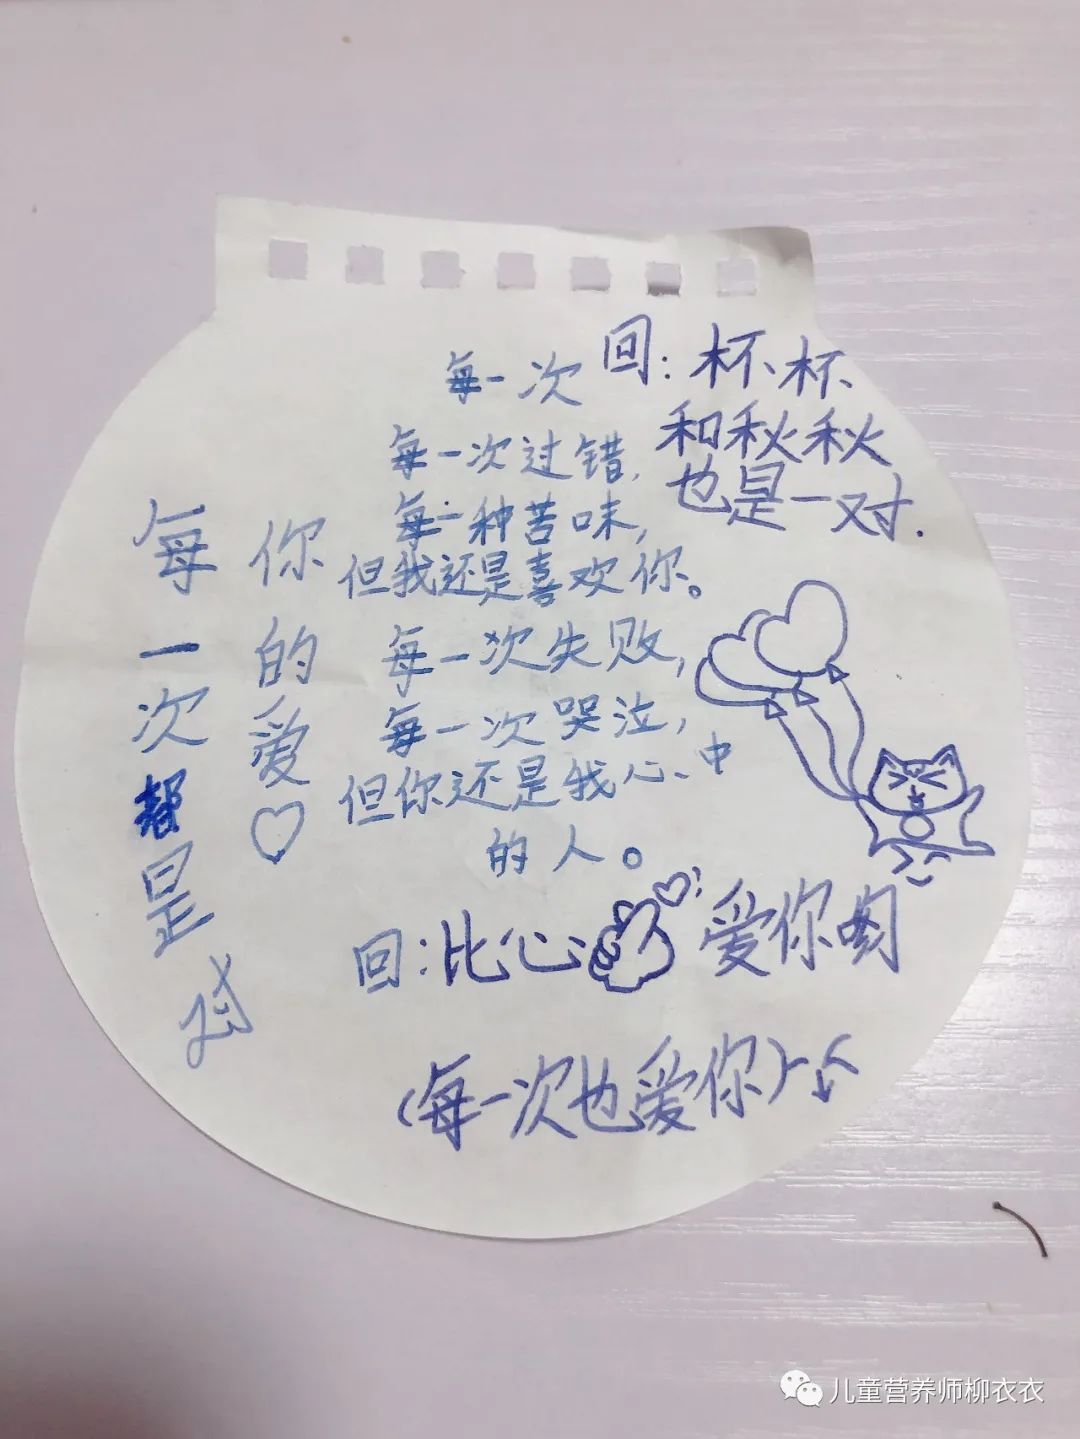 每一次
每一次过错，
每一种苦味，
但我还是喜欢你。
每一次失败，
每一次哭泣，
但你还是我心中
的人。
回：杯杯
和秋秋
也是一对.
回：比心 爱你哟
(每一次也爱你)
每一次都是我
你的爱
儿童营养师柳衣衣